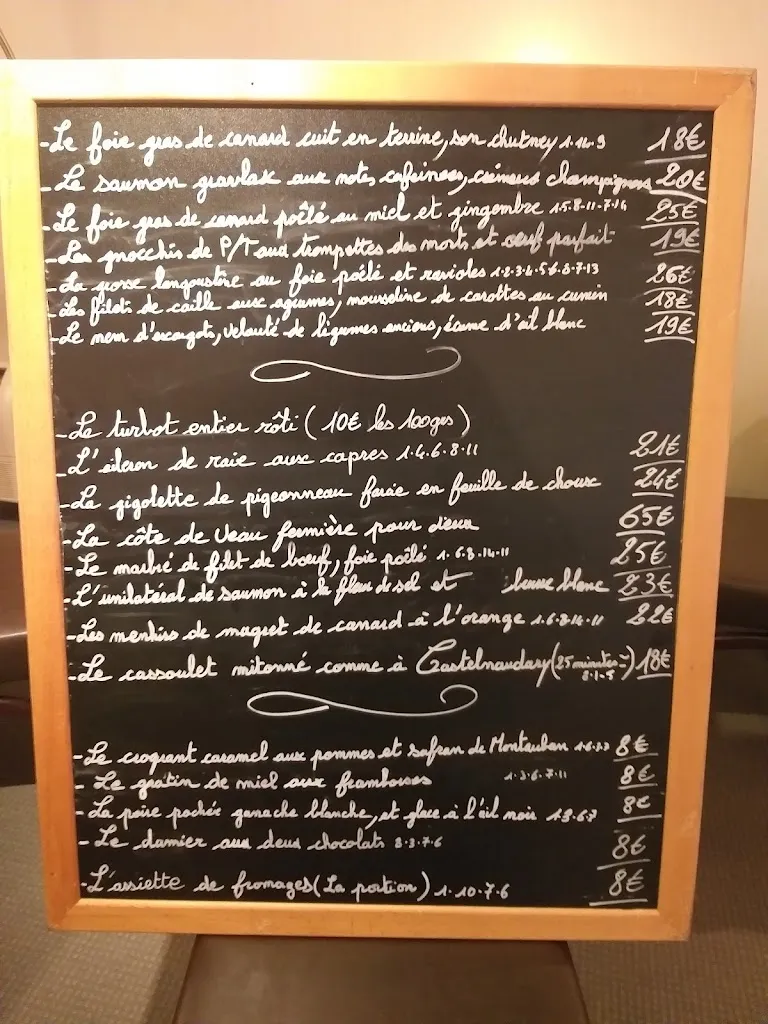 -Le foie gras de canard cuit en terrine, son chutney 1.14.9 18€
-Le saumon gravlax aux notes cafeinees, crémeux champignons 20€
-Le foie gras de canard poêlé au miel et gingembre 1.5.8.11.7.14 25€
-Les gnocchis de P/T aux trompettes des morts et oeuf parfait 19€
-La grosse langoustine au foie poêlé et ravioles 1.2.3.4.5.6.8.7.13 26€
-Les filets de caille aux agrumes, mousseline de carottes au cumin 18€
-Le nem d'escargots, velouté de légumes anciens, écume d'ail blanc 19€
-Le turbot entier rôti (10€ les 100grs)
-L'aileron de raie aux capres 1.4.6.8.11 21€
-La gigolette de pigeonneau farcie en feuille de choux 24€
-La côte de veau fermière pour deux 65€
-Le marbré de filet de boeuf, foie poêlé 1.6.8.14.11 25€
-L'unilatéral de saumon à la fleur de sel et beurre blanc 23€
-Les menhirs de magret de canard à l'orange 1.6.8.14.11 22€
-Le cassoulet mitonné comme à Castelnaudary (25 minutes) 18€
8.1.5
-Le croquant caramel aux pommes et safran de Montauban 8€
- Le gratin de miel aux framboises 1.3.6.7.11 8€
-La poire pochée ganache blanche, et glace à l'ail noir 1.3.6.7 8€
- Le damier aux deux chocolats 8.3.7.6 8€
-L'assiette de fromages (La portion) 1.10.7.6 8€